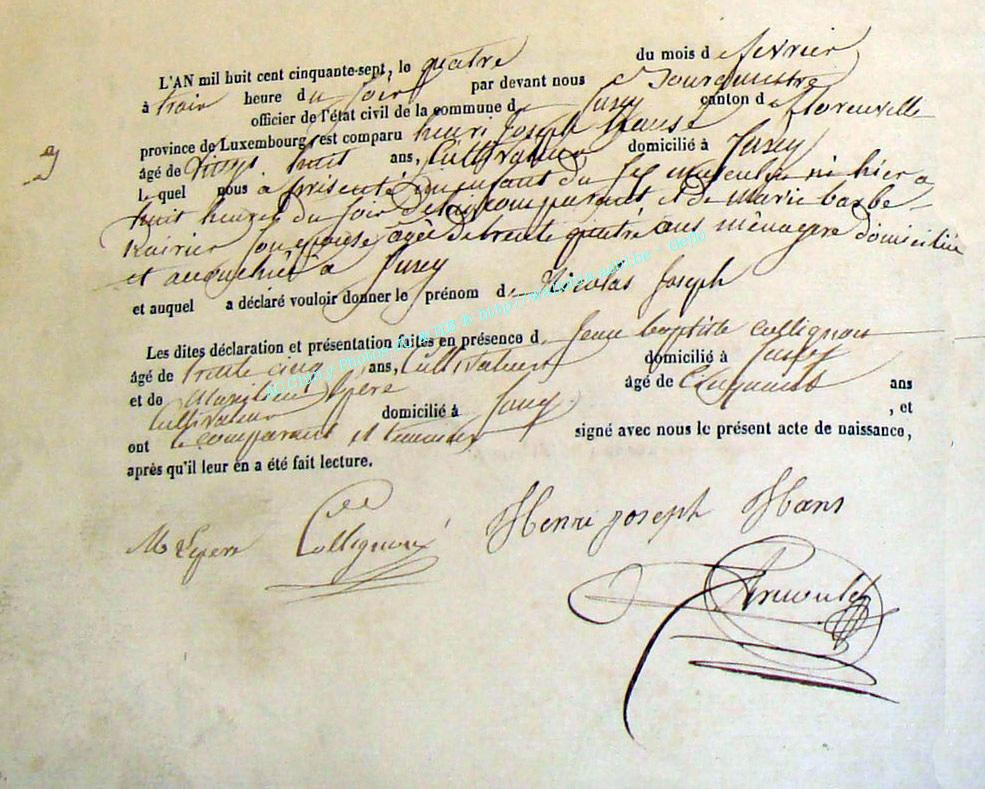 L'AN mil huit cent cinquante-sept, le quatre du mois de fevrier
à trois heure du soir par devant nous Bourguestre
officier de l'état civil de la commune de Jusey canton de florenville
province de Luxembourg est comparu henri Joseph
âgé de vingt huit ans, Cultivateur domicilié à Jusey
lequel nous a présenté un enfant du sex masculin né hier a
huit heures du soir de lui comparant et de marie barbe
son epouse agée de trente quatre ans ménagere domiciliée
et à Jusey
et auquel a déclaré vouloir donner le prénom de Nicolas Joseph
Les dites déclaration et présentation faites en présence de Jean baptiste collignon
âgé de trente cinq ans, Cultivateur domicilié à Jusey
et de Lepere âgé de Cinquante ans
Cultivateur domicilié à , et
ont le comparant et temoins signé avec nous le présent acte de naissance,
après qu'il leur en a été fait lecture.
M Lepere Collignon Henri joseph Hans
Arnould